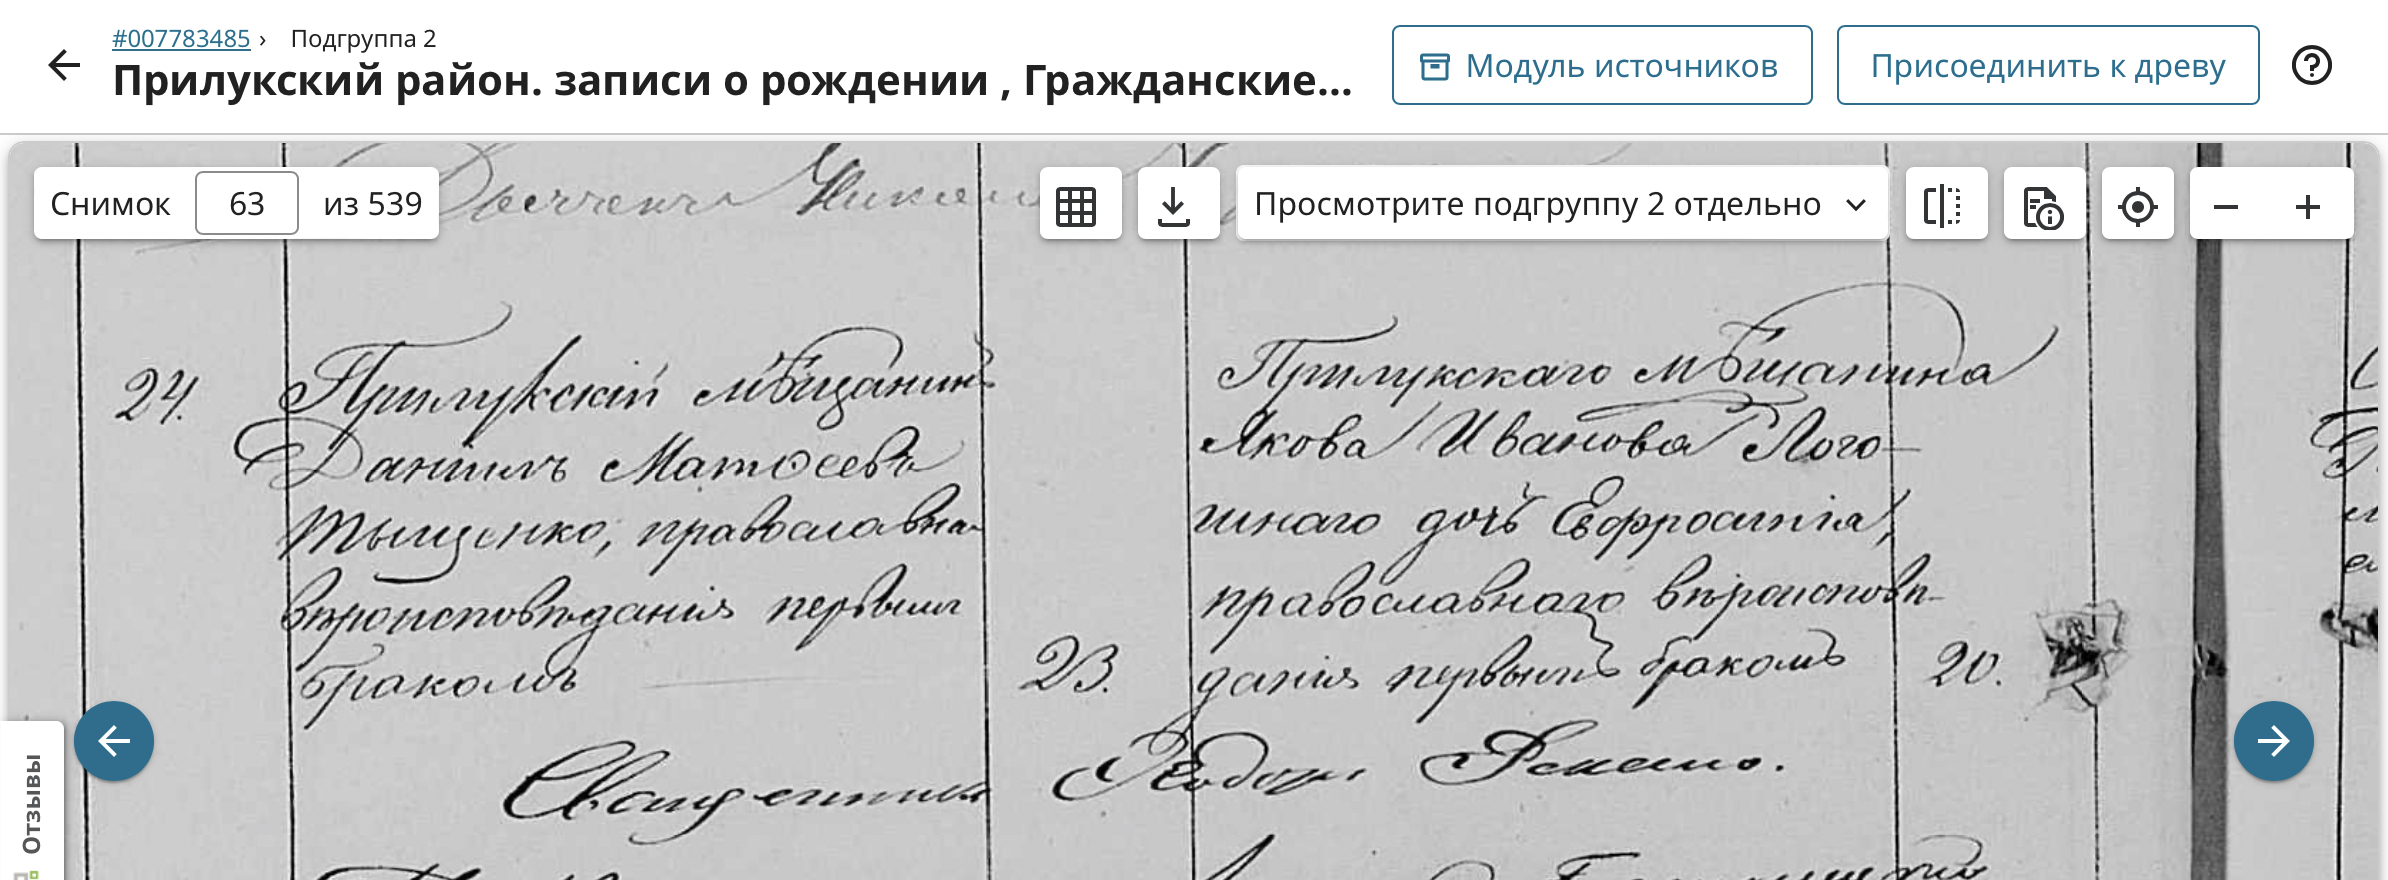 #007783485 › Подгруппа 2
Прилукский район. записи о рождении , Гражданские...
Модуль источников
Присоединить к древу
Снимок 63 из 539
Просмотрите подгруппу 2 отдельно
24.
Прилукскій мѣщанинъ
Даніилъ Матѳеевъ
Тыщенко, православна-
вѣроисповѣданія первымъ
бракомъ
23.
Прилукскаго мѣщанина
Якова Иванова Лого-
шнаго дочь Евфросинія,
православнаго вѣроисповѣ-
данія первымъ бракомъ
20.
Священникъ Ѳеодоръ
Отзывы